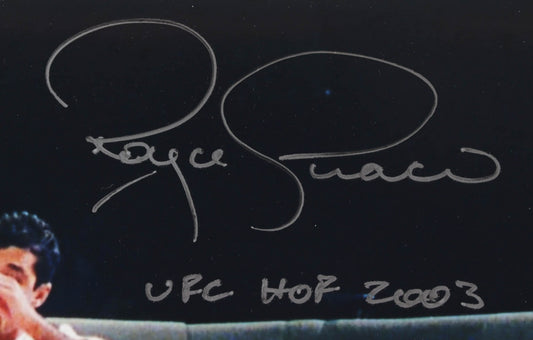 Royce Gracie
UFC HOF 2003